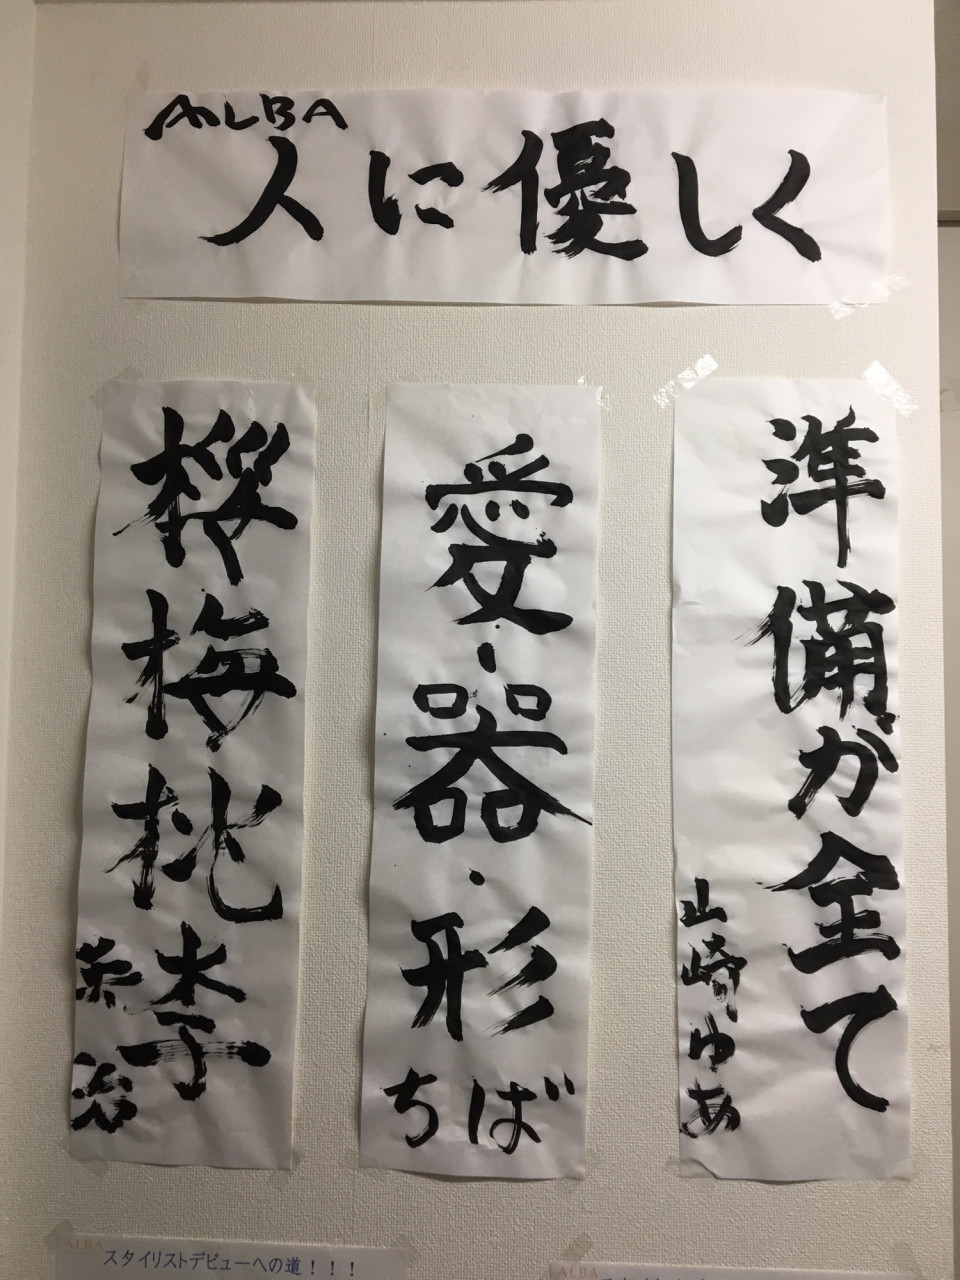 ALBA
人に優しく
準備が全て
山崎ゆあ
愛・器・形
ちば
桜梅桃李
栄治
ALBA
スタイリストデビューへの道！！！
ALBA